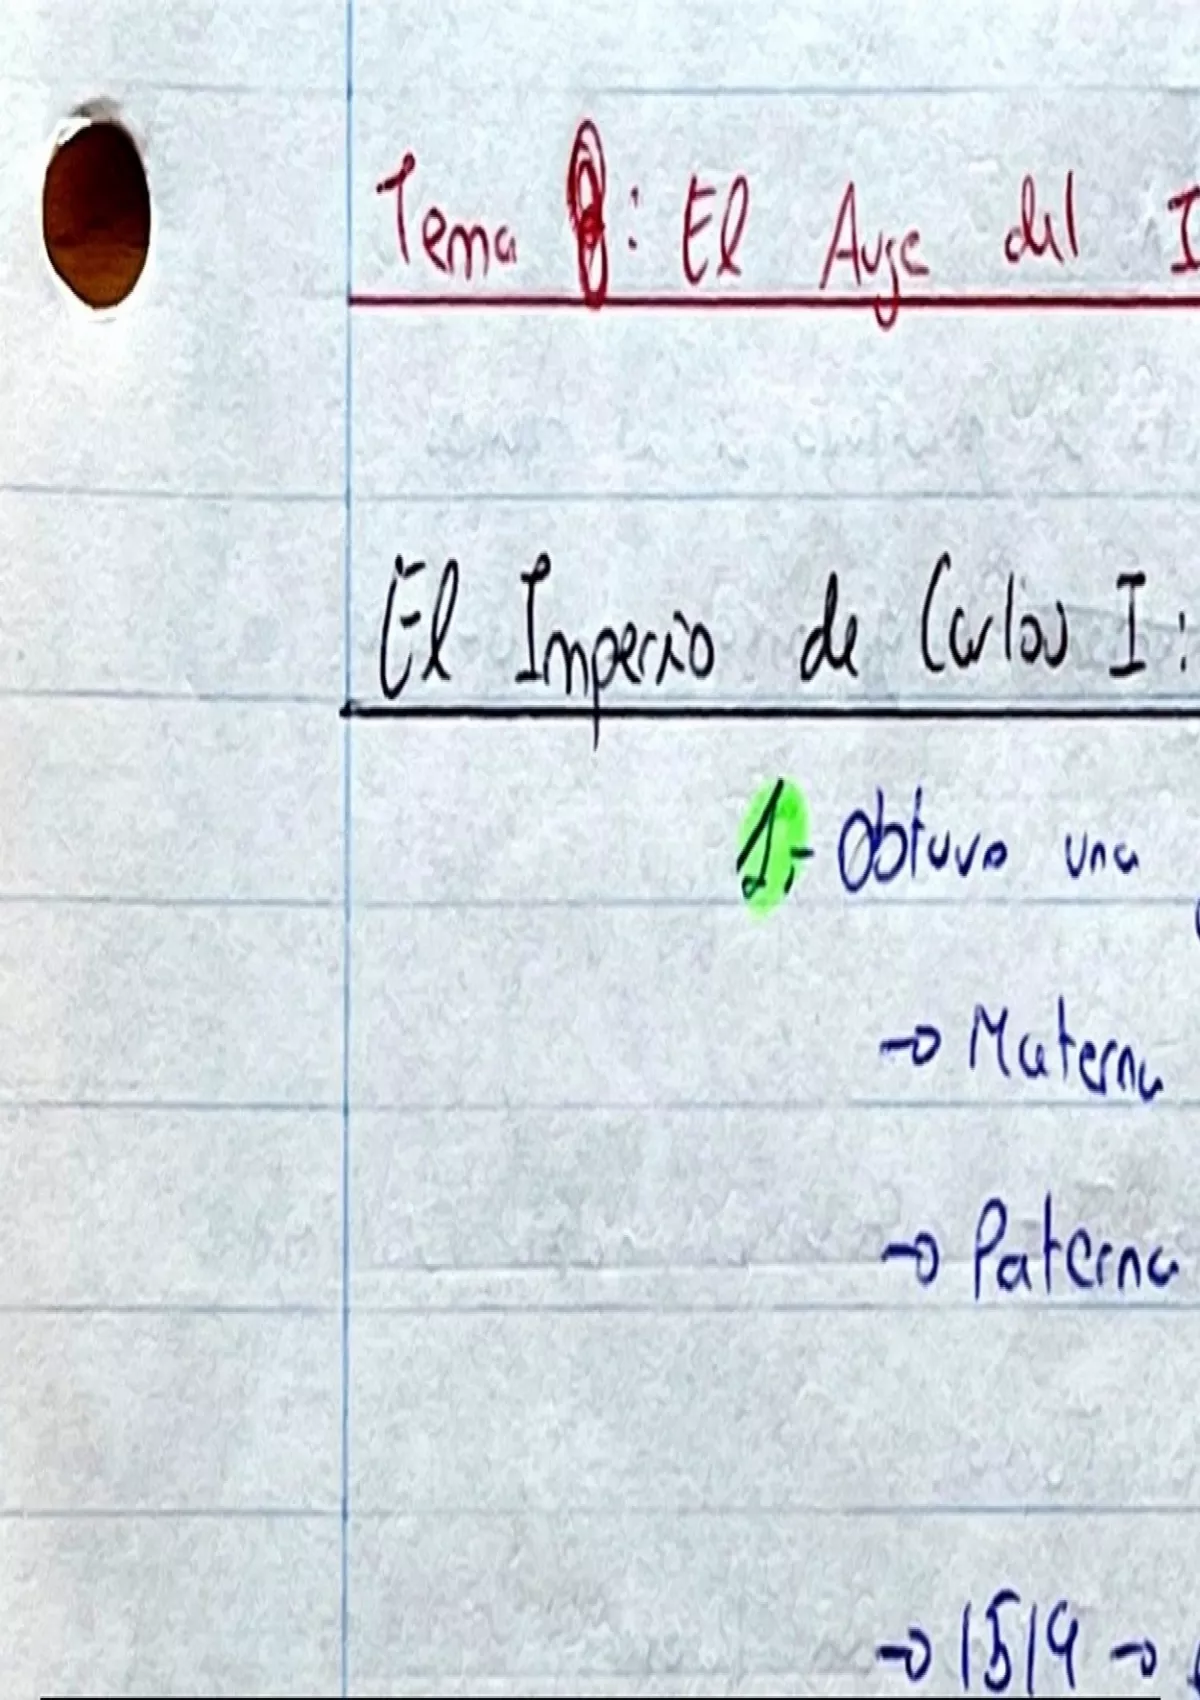 Tema 8: El Auge del I
El Imperio de Carlos I:
1.- Obtuvo una
→ Materna
→ Paterna
→ 1519 →